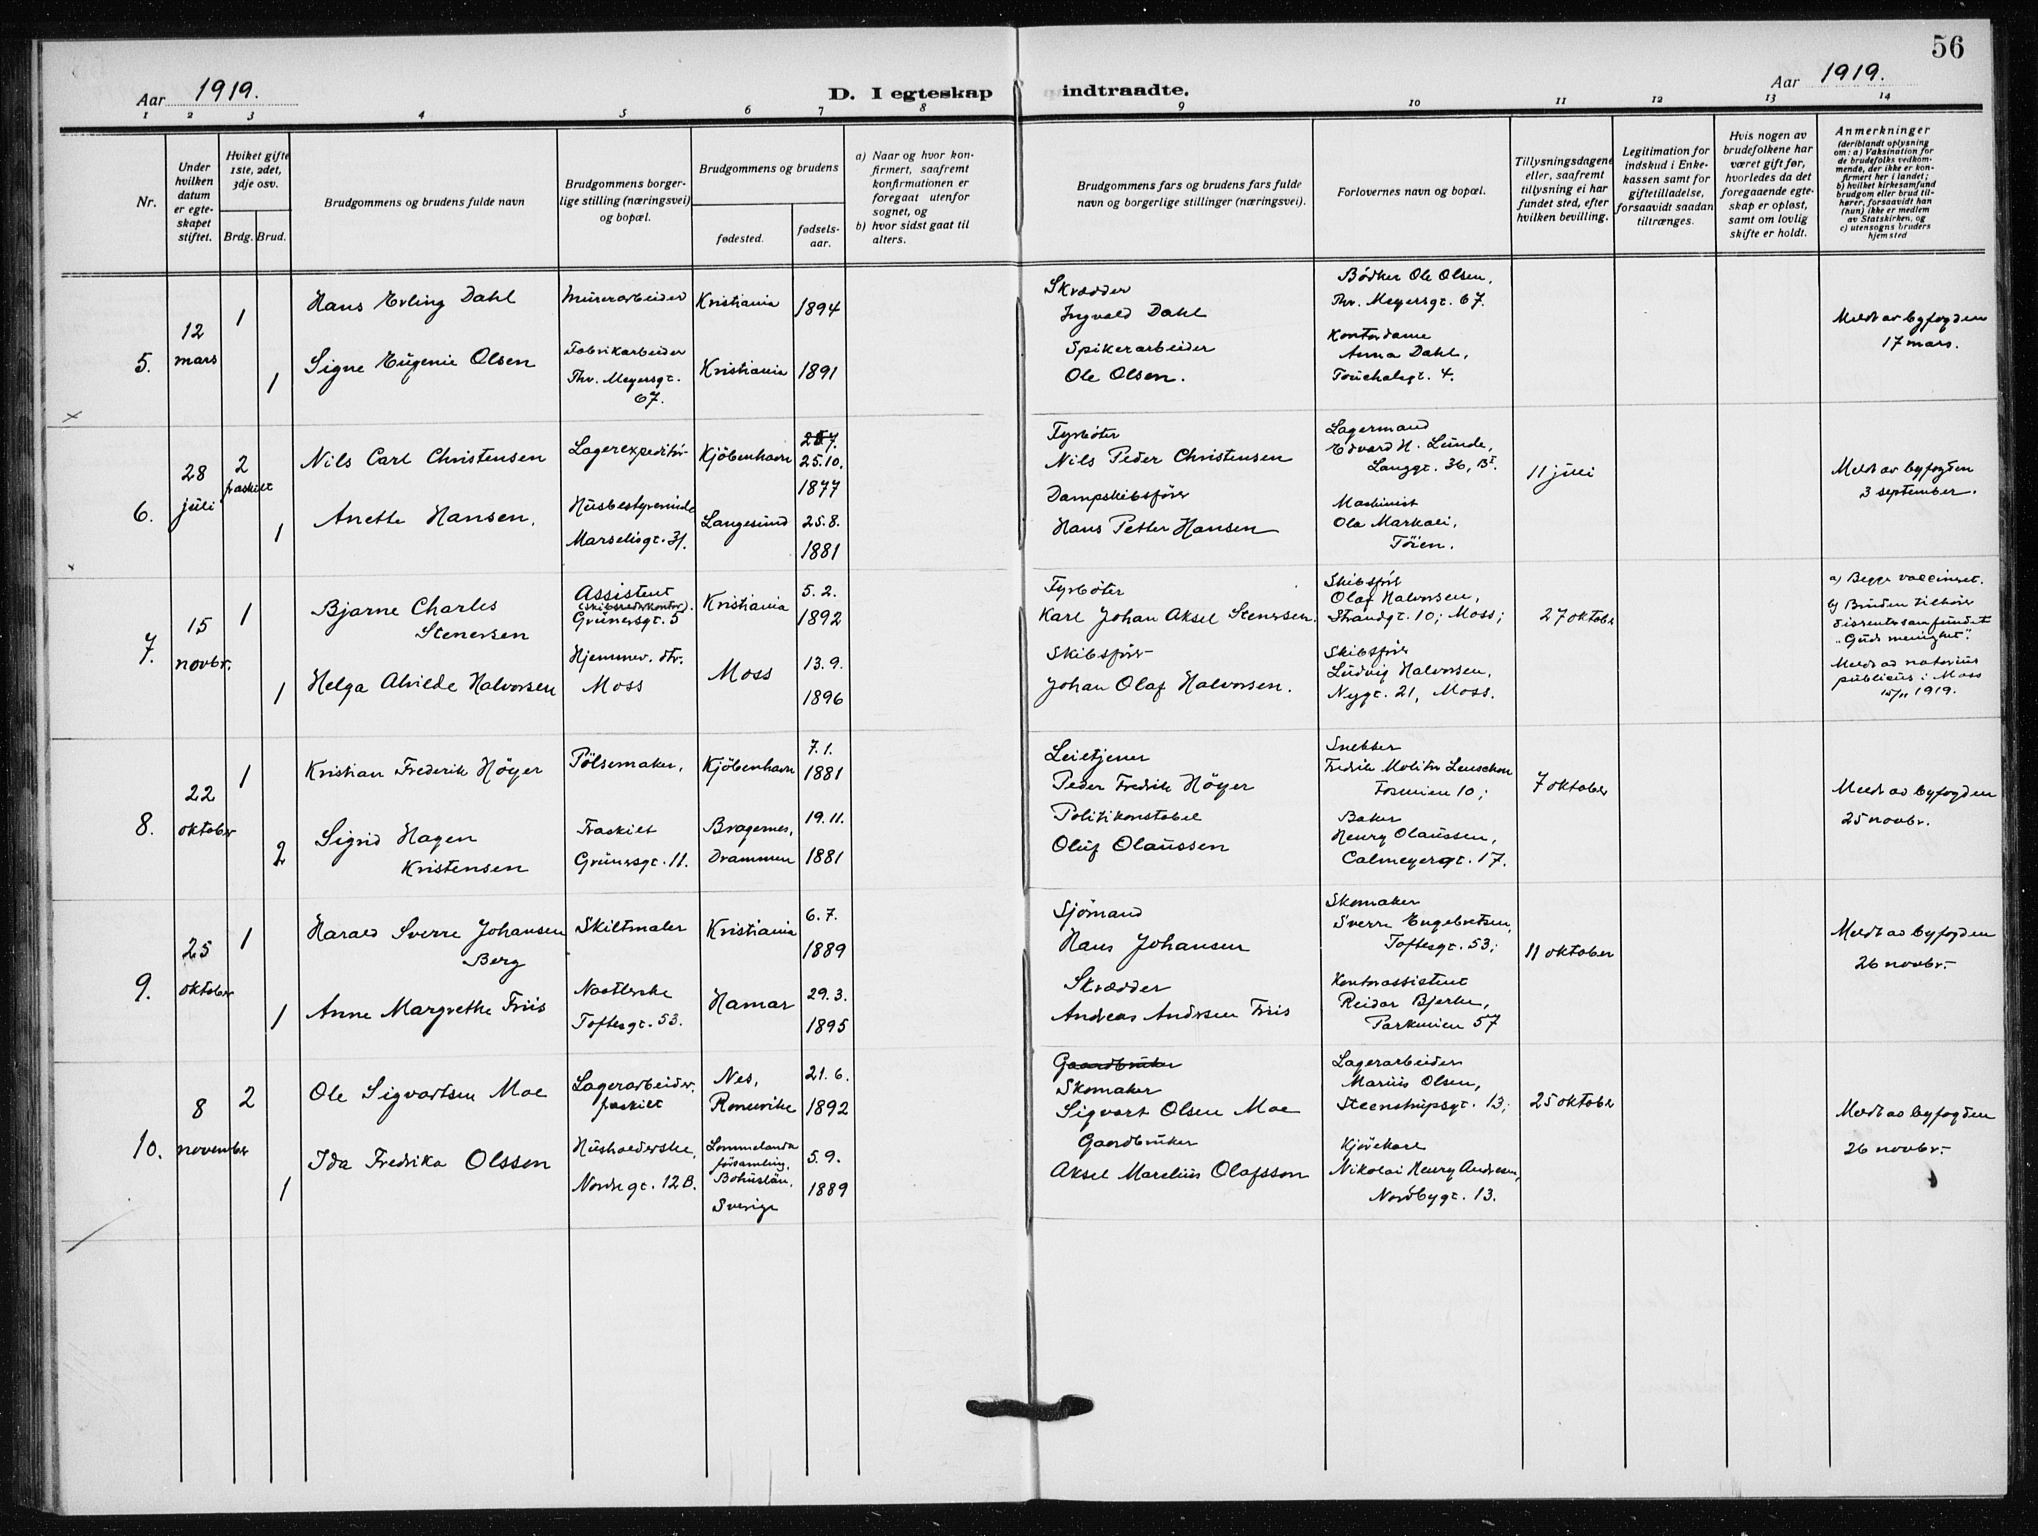 56
Aar 1919.
D. I egteskap indtraadte.
Aar 1919.
1 2 3 4 5 6 7 8 9 10 11 12 13 14
Nr.
Under hvilken datum er egteskapet stiftet.
Hviket gifte 1ste, 2det, 3dje osv.
Brdg. Brud.
Brudgommens og brudens fulde navn
Brudgommens borgerlige stilling (næringsvei) og bopæl.
Brudgommens og brudens
fødested.
fødselsaar.
a) Naar og hvor konfirmert, saafremt konfirmationen er foregaat utenfor sognet, og
b) hvor sidst gaat til alters.
Brudgommens fars og brudens fars fulde navn og borgerlige stillinger (næringsvei).
Forlovernes navn og bopæl.
Tillysningsdagene eller, saafremt tillysning ei har fundet sted, efter hvilken bevilling.
Legitimation for indskud i Enkekassen samt for giftetilladelse, forsaavidt saadan tiltrænges.
Hvis nogen av brudefolkene har været gift før, hvorledes da det foregaaende egteskap er opløst, samt om lovlig skifte er holdt.
Anmerkninger
(deriblandt oplysning om: a) Vaksination for de brudefolks vedkommende, der ikke er konfirmert her i landet; b) hvilket kirkesamfund brudgom eller brud tilhører, forsaavidt han (hun) ikke er medlem av Statskirken, og c) utensogns bruders hjemsted
5.
12 mars
1
Hans Erling Dahl
Murerarbeider
Kristiania
1894
1
Signe Eugenie Olsen
Fabrikarbeider
Thv. Meyersgt. 67.
Kristiania
1891
Skrædder
Ingvald Dahl
Spikerarbeider
Ole Olsen.
Bødker Ole Olsen,
Thv. Meyersgt. 67.
Kontordame
Anna Dahl,
4.
Meldt av byfogden
17 mars.
6.
28 juli
2
fraskilt
Nils Carl Christensen
Lagerexpeditør
Kjøbenhavn
25.10.
1877
1
Anette Hansen.
Husbestyrerinde
Marselisgt. 31.
Langesund
25.8.
1881
Fyrbøter
Nils Peder Christensen
Dampskibsfører
Hans Petter Hansen
Lagermand
Edvard H. Lunde,
Langgt. 36, B I.
Maskinist
Ole Markali,
Töien.
11 juli
Meldt av byfogden
3 september.
7.
15 novbr.
1
Bjarne Charles
Stenersen
Assistent
(skibsrederkontor).
Grünersgt. 5
Kristiania
5.2.
1892
1
Helga Alvilde Halvorsen
Hjemmev. dtr.
Moss
Moss
13.9.
1896
Fyrbøter
Karl Johan Aksel Stenersen.
Skibsfører
Johan Olaf Halvorsen.
Skibsfører
Olaf Halvorsen,
Strandgt. 10; Moss;
Skibsfører
Ludvig Halvorsen,
Nygt. 21, Moss.
27 oktober
a) Begge vaccineret.
b) Bruden tilhører
dissentersamfundet
"Guds menighet".
Meldt av notarius
publicus i Moss
15/11 1919.
8.
22 oktober
1
Kristian Frederik Höyer
Pölsemaker,
Kjöbenhavn
7.1.
1881
2
Sigrid Hagen
Kristensen
Fraskilt
Grünersgt. 11.
Bragernes,
Drammen
19.11.
1881
Leietjener
Peder Fredrik Höyer
Politikonstabel
Oluf Olaussen
Snekker
Fredrik Molitor Leuschen
10;
Baker
Henry Olaussen,
Calmeyersgt. 17.
7 oktober
Meldt av byfogden
25 novbr.
9.
25 oktober
1
Harald Sverre Johansen
Berg
Skiltmaler
Kristiania
6.7.
1889
1
Anne Margrethe Friis
Naatlerske
Toftesgt. 53.
Hamar
29.3.
1895
Sjömand
Hans Johansen
Skrædder
Andreas Andersen Friis
Skomaker
Sverre Engebretsen,
Toftesgt. 53;
Kontorassistent
Reidar Bjerke,
Parkveien 57
11 oktober
Meldt av byfogden
26 novbr.
10.
8 november
2
Ole Sigvartsen Moe
Lagerarbeider.
fraskilt
Nes,
Romerike
21.6.
1892
1
Ida Fredrika Olsson
Husholderske,
Nordregt. 12 B.
Lommelanda
församling,
Bohuslän,
Sverige
5.9.
1889
Gaardbruker
Skomaker
Sigvart Olsen Moe
Gaardbruker
Aksel Marelius Olafsson
Lagerarbeider
Marius Olsen,
Steenstrupsgt. 13;
Kjörekarl
Nikolai Henry Andresen,
Nordbygt. 13.
25 oktober
Meldt av byfogden
26 novbr.